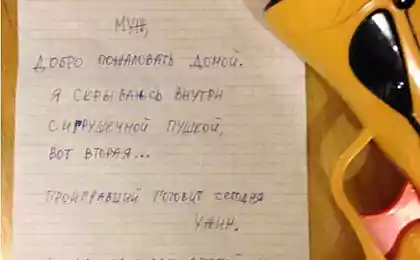 МУЖ,
ДОБРО ПОЖАЛОВАТЬ ДОМОЙ.
Я СКРЫВАЮСЬ ВНУТРИ
С ИГРУШЕЧНОЙ ПУШКОЙ,
ВОТ ВТОРАЯ...
ПРОИГРАВШИЙ ГОТОВИТ СЕГОДНЯ
УЖИН.